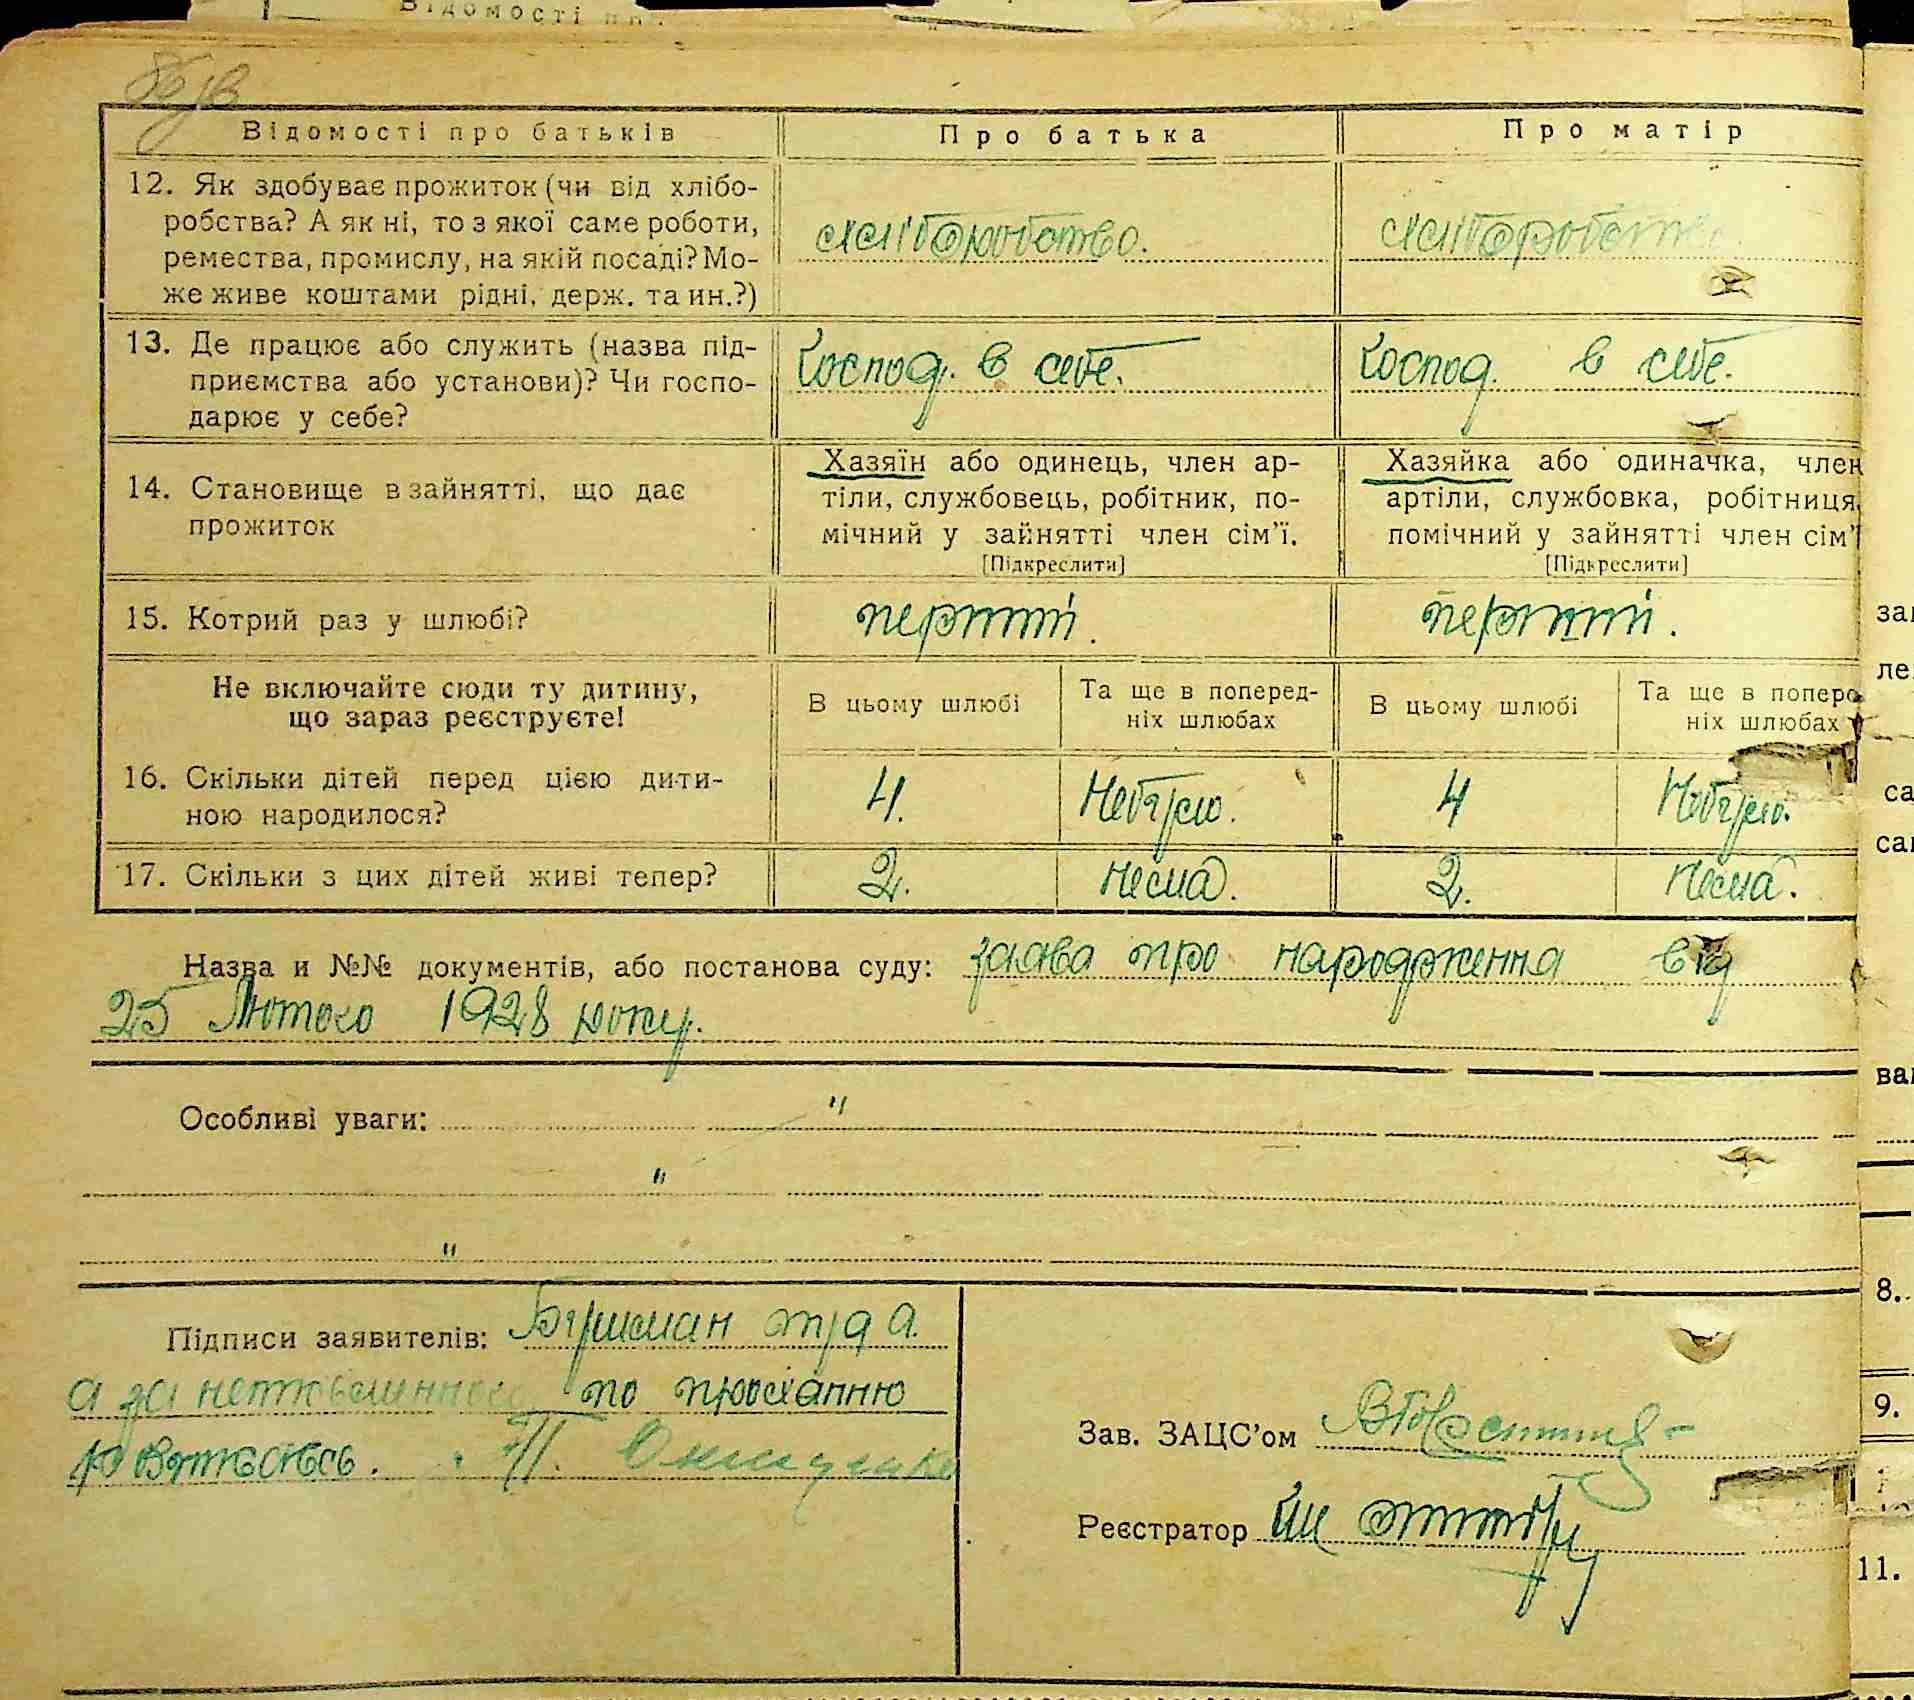 Відомості про батьків
Про батька
Про матір
12. Як здобуває прожиток (чи від хлібо-
робства? А як ні, то з якої саме роботи,
ремества, промислу, на якій посаді? Мо-
же живе коштами рідні, держ. та ин.?)
хліборобство.
хліборобство
13. Де працює або служить (назва під-
приємства або установи)? Чи госпо-
дарює у себе?
Господ. в себе.
Господ. в себе.
14. Становище в зайнятті, що дає
прожиток
Хазяїн або одинець, член ар-
тіли, службовець, робітник, по-
мічний у зайнятті член сім'ї.
[Підкреслити]
Хазяйка або одиначка, член
артіли, службовка, робітниця,
помічний у зайнятті член сім'ї
[Підкреслити]
15. Котрий раз у шлюбі?
перший.
перший.
Не включайте сюди ту дитину,
що зараз реєструєте!
В цьому шлюбі
Та ще в поперед-
ніх шлюбах
В цьому шлюбі
Та ще в попере
ніх шлюбах
16. Скільки дітей перед цією дити-
ною народилося?
4.
Небуло.
4
Небуло.
17. Скільки з цих дітей живі тепер?
2.
нема.
2.
нема.
Назва и №№ документів, або постанова суду: заява про народження від
25 Лютого 1928 року.
Особливі уваги: "
"
"
Підписи заявителів:
а за неписьменного по проханню
розписавсь.
Зав. ЗАЦС'ом
Реєстратор
8.
9.
11.